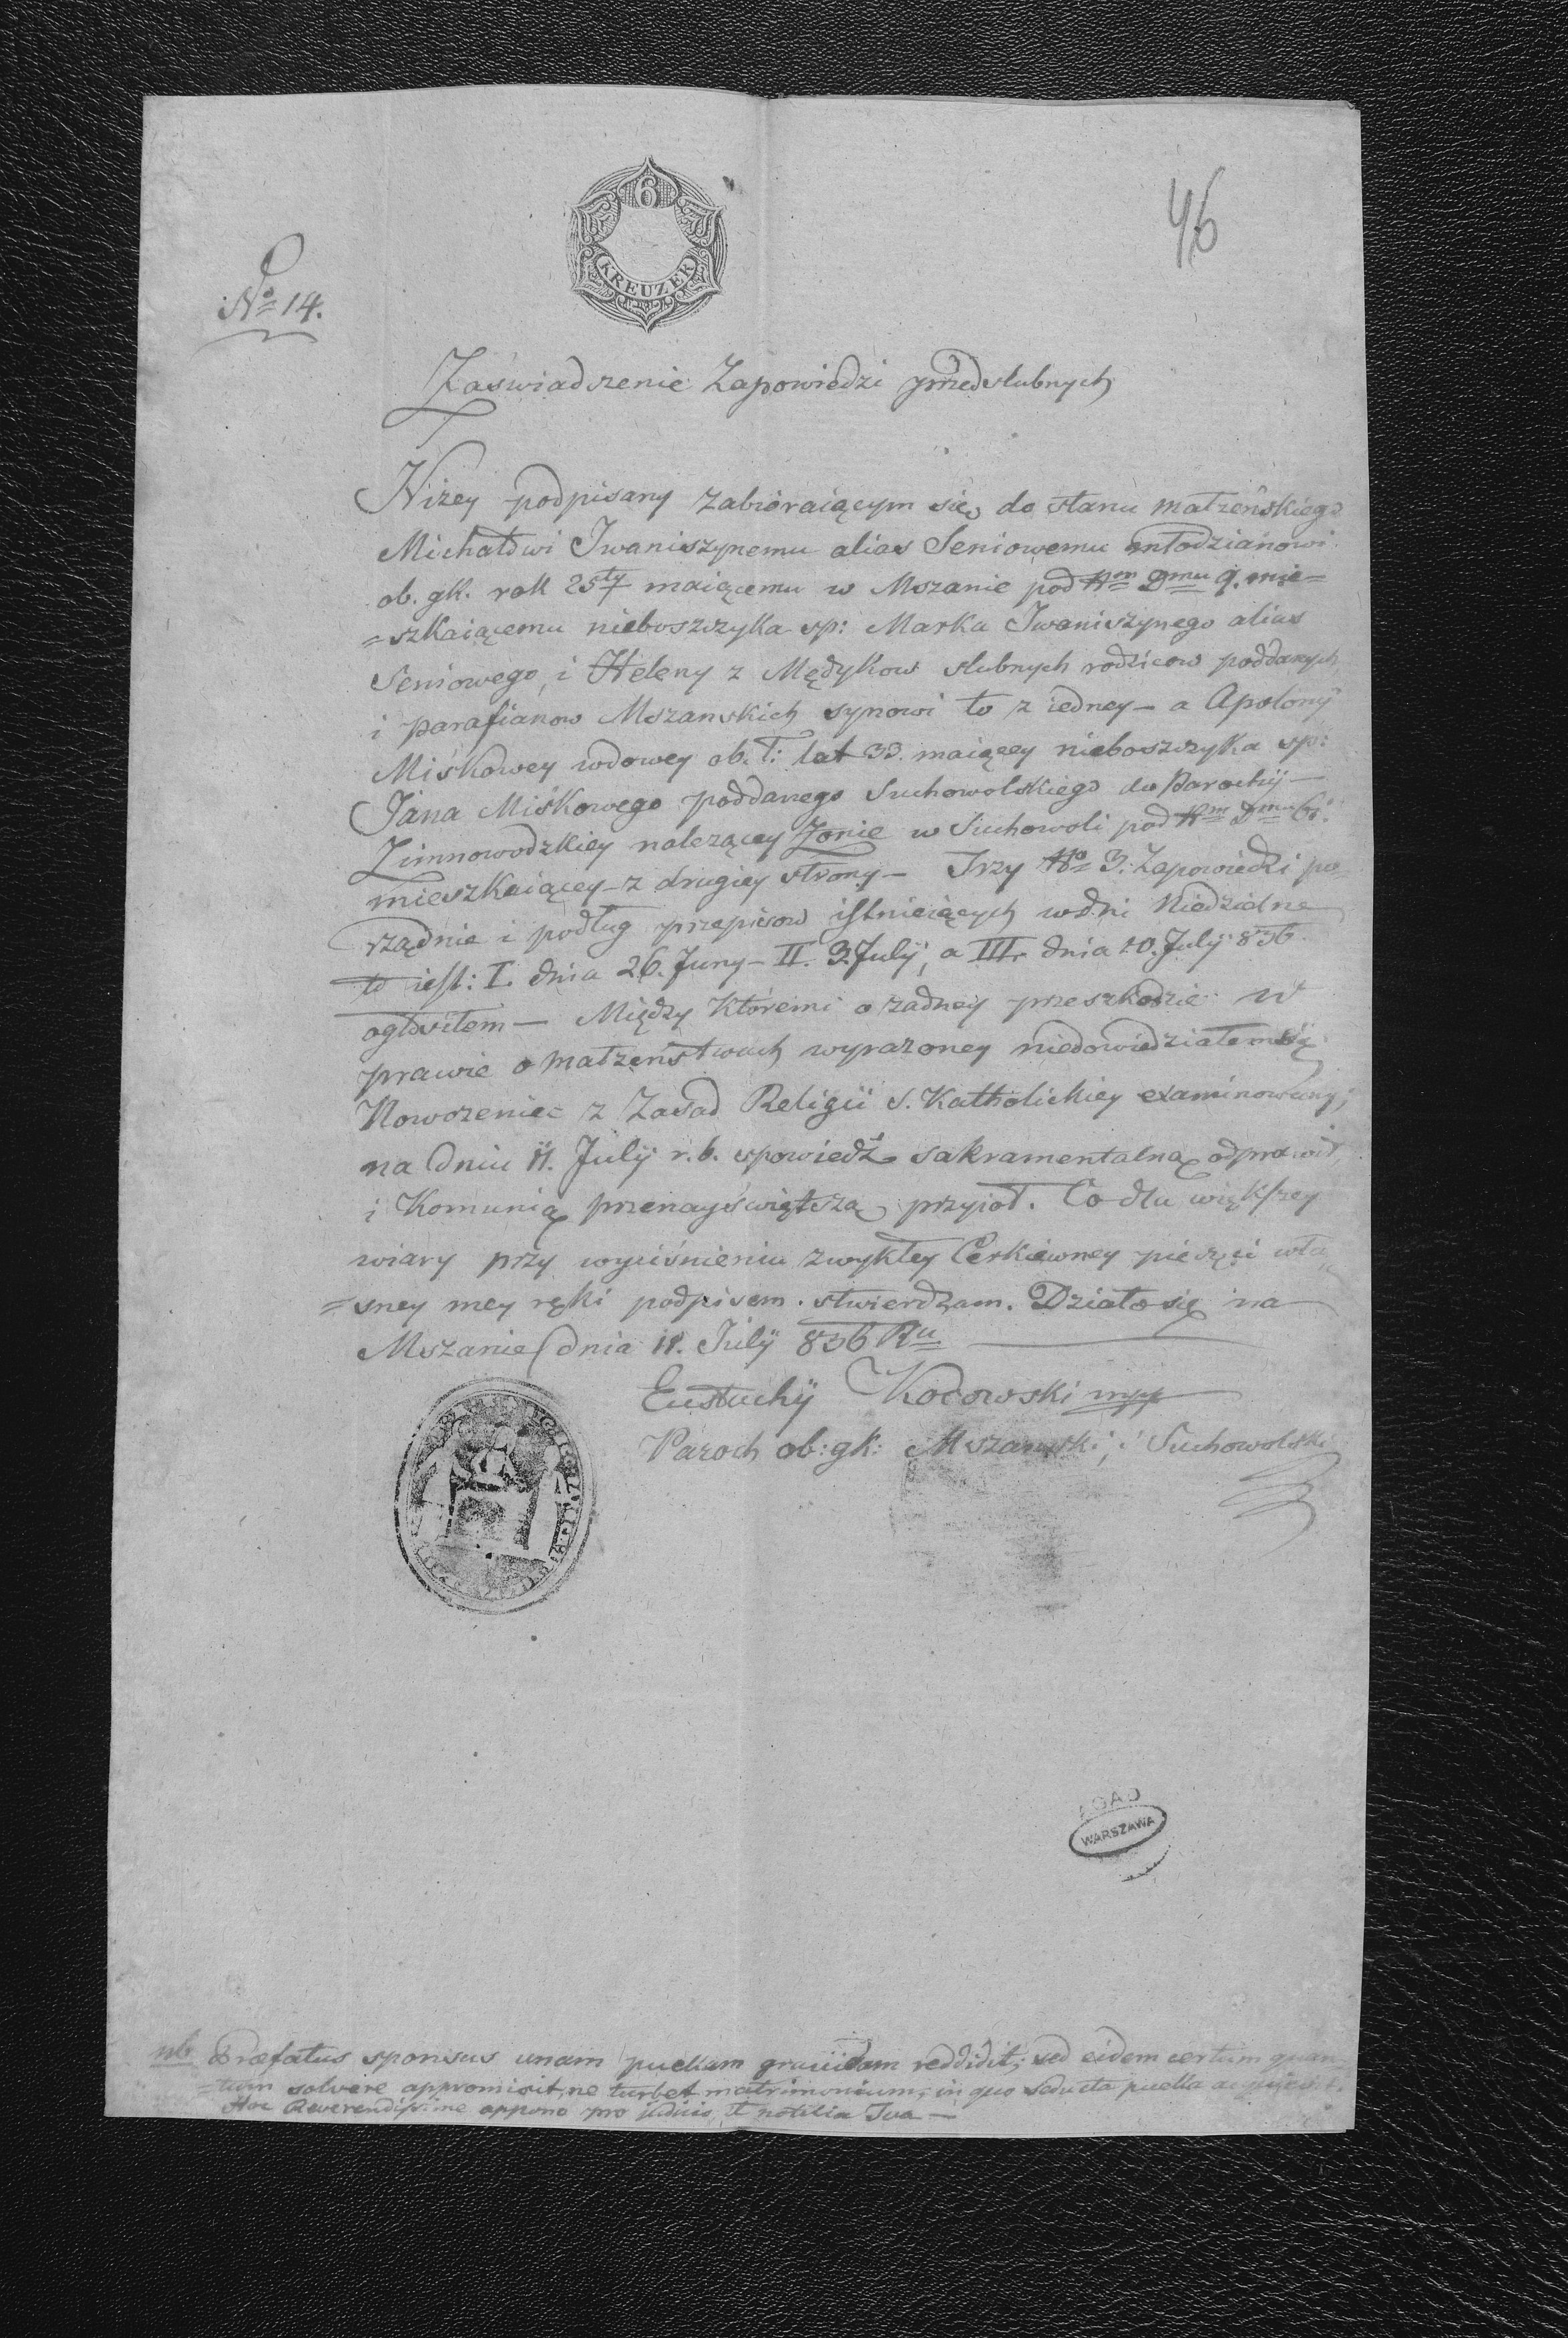 6
KREUZER
46
No 14.
Zaświadczenie Zapowiedzi przedslubnych
Niżey podpisany zabioraiącym się do stanu małżeńskiego
Michałowi Iwaniszynemu alias Seniowemu młodzianowi
ob. gk. rok 25ty maiącemu w Mszanie pod Nm Dmu 9. mie=
=szkaiącemu nieboszczyka sp: Marka Iwaniszynego alias
Seniowego, i Heleny z Mędykow slubnych rodzicow poddanych
i parafianow Mszanskich synowi to z iedney – a Apolony
Miśkowey wdowey ob. ł: lat 33. maiącey nieboszczyka sp:
Jana Miśkowego poddanego Suchowolskiego do Parochij –
Zimnowodzkiey nalezącey Zonie w Suchowoli pod Nm Dmu 61.
mieszkaiącey – z drugiey strony – Trzy No 3. Zapowiedzi po=
rządnie i podług przepisow istnieiących w dni Niedzielne
to iest: I. dnia 26. Juny – II. 3. July, a III. dnia 10. July 836.
ogłosiłem – Między któremi o zadney przeszkodzie w
prawie o małżeństwach wyrazoney niedowiedziałem się
Nowozeniec z Zasad Religii s. Katholickiey examinowany;
na dniu 11. July r. b. spowiedź sakramentalną odprawił,
i Komunią przenayświętszą przyioł. Co dla większey
wiary przy wyciśnieniu zwykłey Cerkiewney pieczęci wła
=sney mey ręki podpisem stwierdzam. Działo się na
Mszanie dnia 11. July 836 Ru
Eustachy Kocowski mpp
Paroch ob: gk: Mszanski, i Suchowolski
AGAD
WARSZAWA
nb Praefatus sponsus unam puellam gravidam reddidit; sed eidem certum quan=
=tum solvere appromisit, ne turbet matrimonium, in quo seducta puella acquievit.
Hoc Reverendissime appono pro judicio, et notitia Sua —